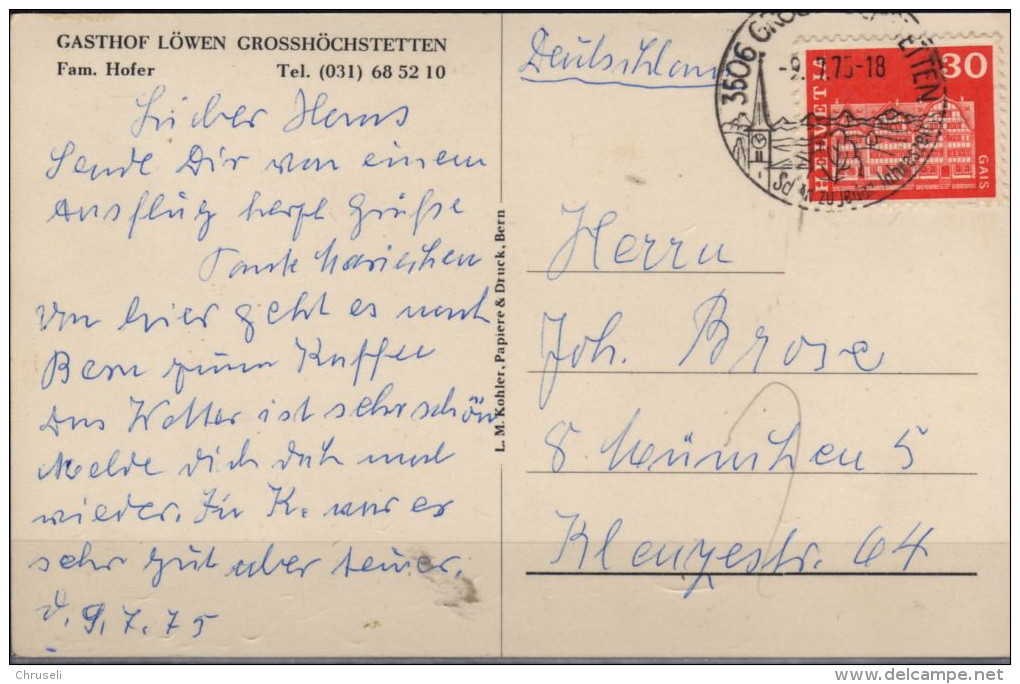 GASTHOF LÖWEN GROSSHÖCHSTETTEN
Fam. Hofer Tel. (031) 68 52 10
Lieber Hans
Sende Dir von einem
Ausflug herzl Grüße
Tante Mariechen
Von hier geht es nach
Bern zum Kaffee
Das Wetter ist sehr schön
Melde dich doch mal
wieder. In K. war es
sehr gut aber teuer.
d. 9.7.75
L. M. Kohler, Papiere & Druck, Bern
Deutschland
3506
-9. 7.75-18
HELVETIA
30
GAIS
Herrn
Joh. Brose
8 München 5
Klenzestr. 64
© Chruseli
www.delcampe.net